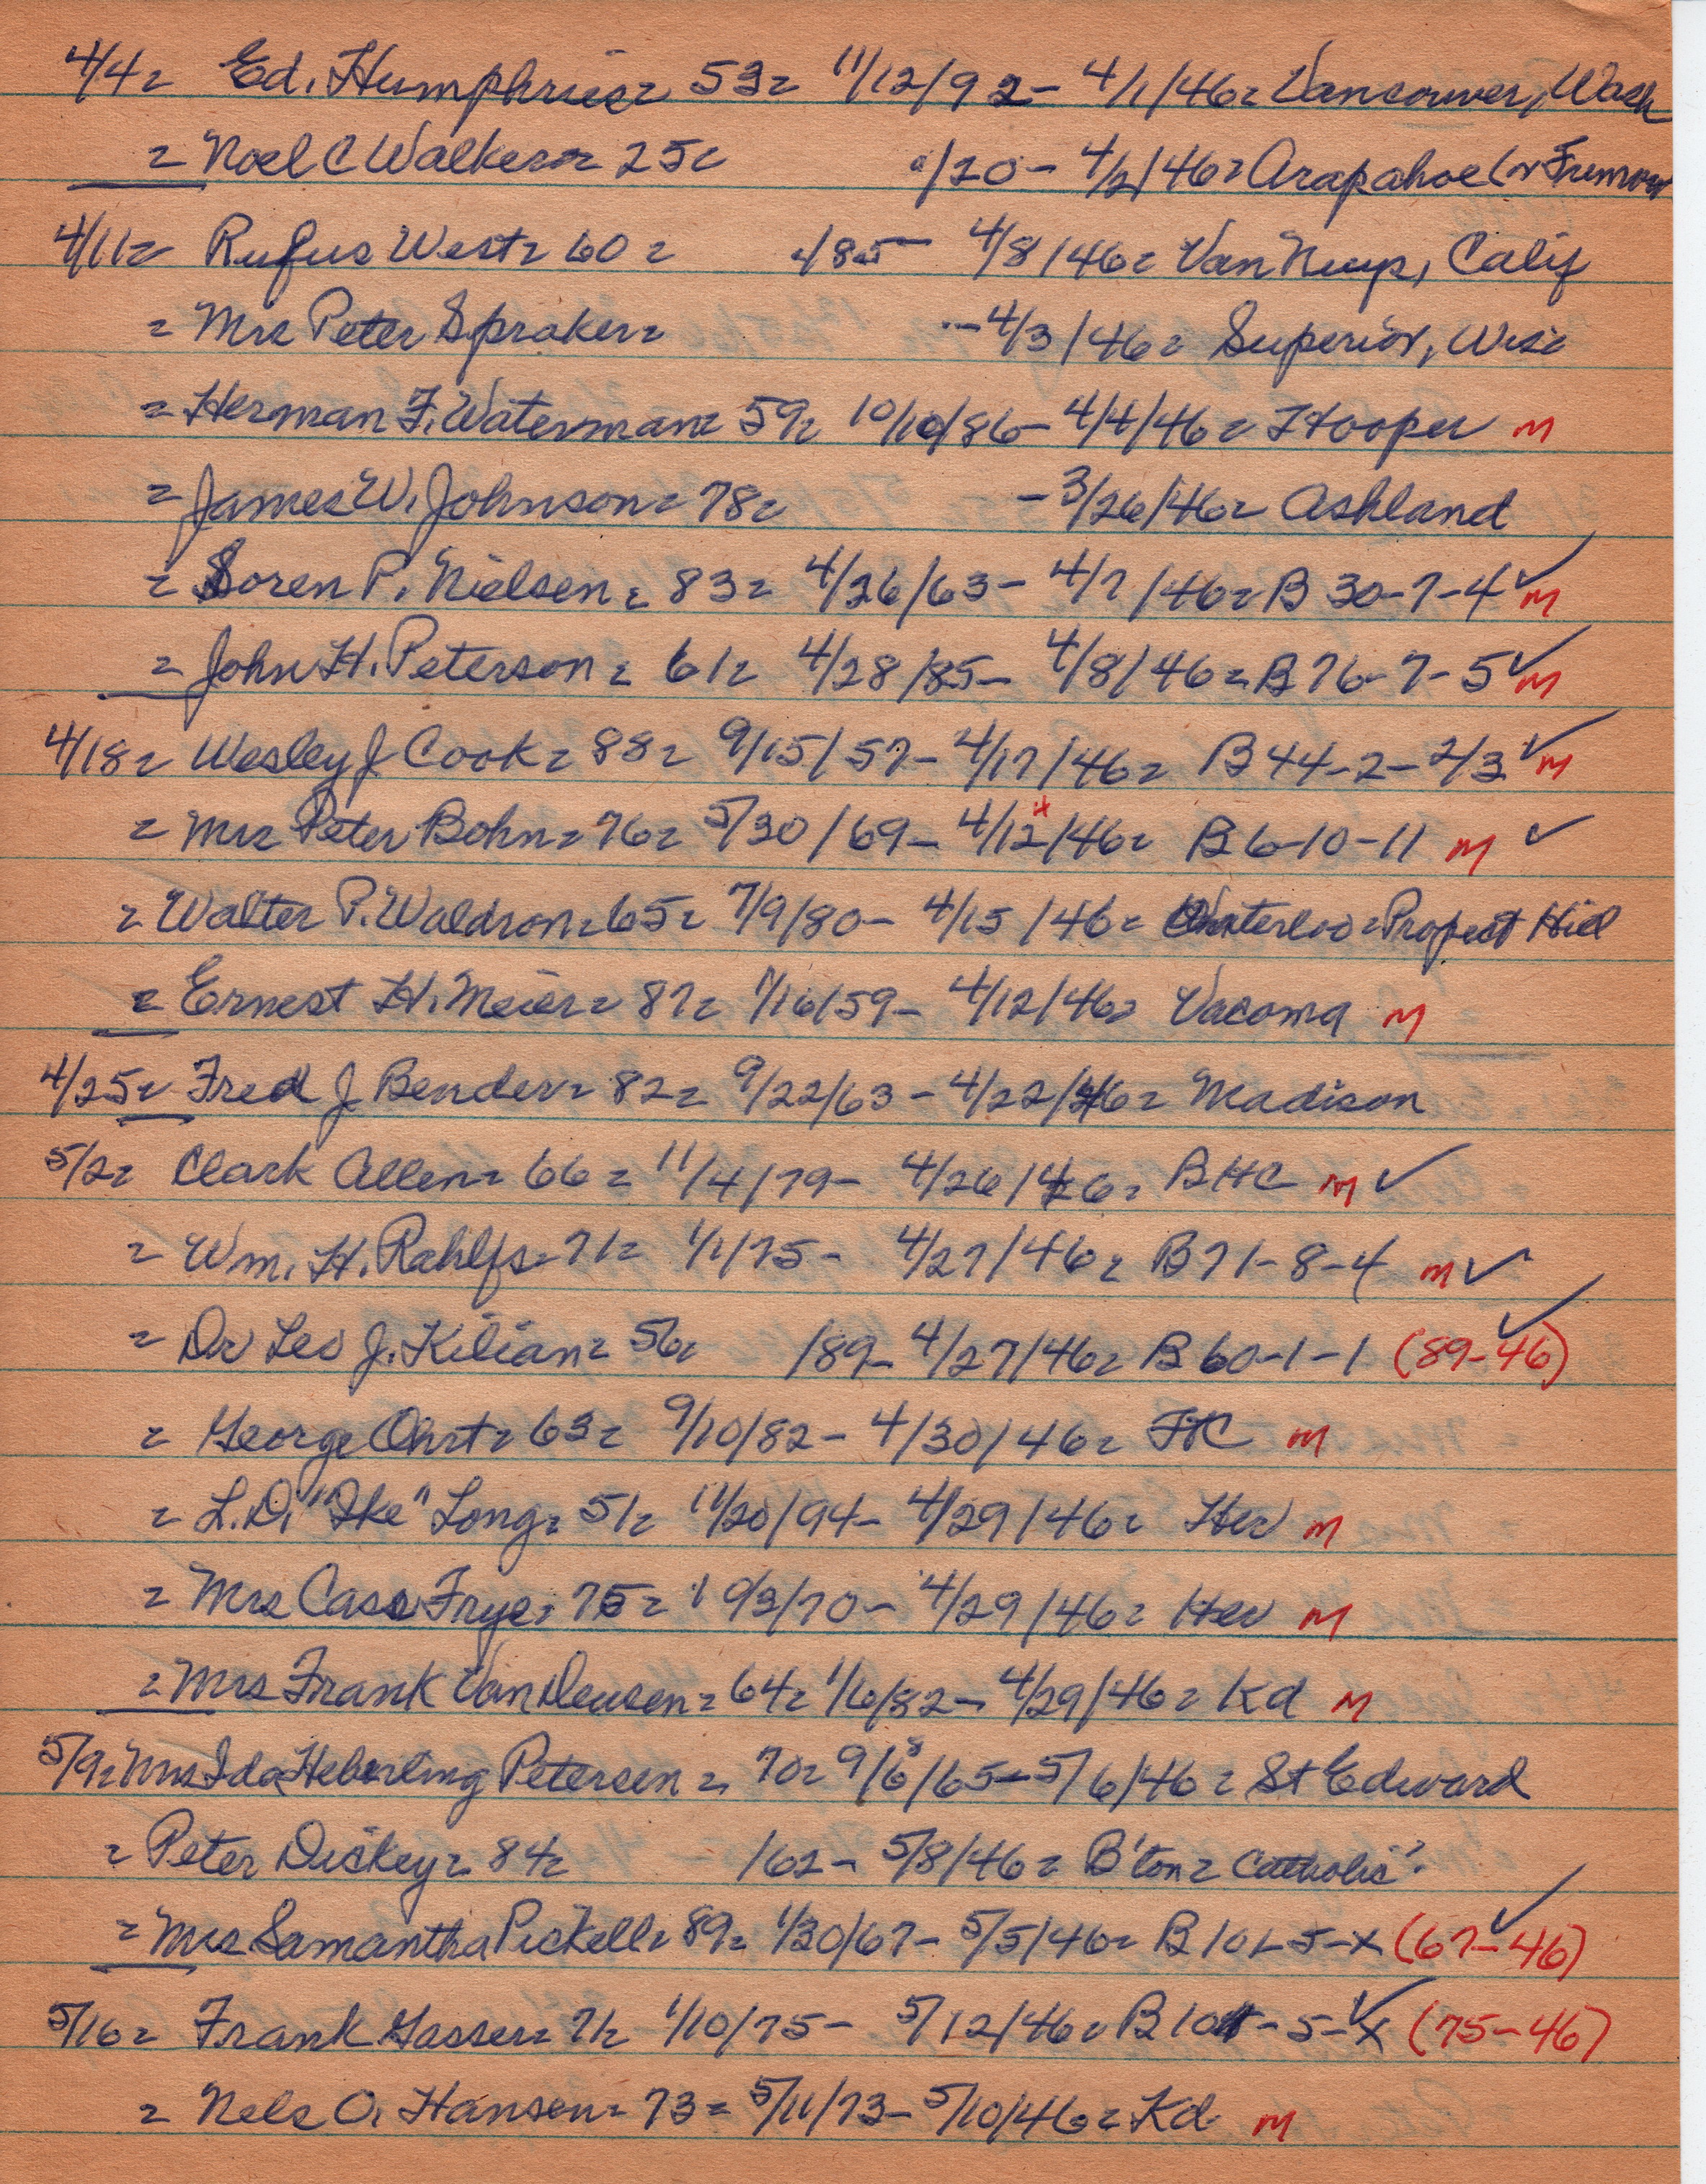 4/4= Ed. Humphries= 53= 11/12/92- 4/1/46= Vancouver, Wash
= Noel C Walker= 25= /20- 4/2/46= Arapahoe (or Fremont
4/11= Rufus West= 60= /85- 4/8/46= Van Nuys, Calif
= Mrs Peter Spraker= -4/3/46= Superior, Wisc
= Herman F. Waterman= 59= 10/10/86- 4/4/46= Hooper M
= James W. Johnson= 78= -3/26/46= Ashland
= Soren P. Nielsen= 83= 4/26/63- 4/7/46= B 30-7-4 ✓ M
= John H. Peterson= 61= 4/28/85- 4/8/46= B 76-7-5 ✓ M
4/18= Wesley J Cook= 88= 9/15/57- 4/17/46= B 44-2-2/3 ✓ M
= Mrs Peter Bohn= 76= 5/30/69- 4/12/46= B 6-10-11 M ✓
= Walter P. Waldron= 65= 7/9/80- 4/15/46= Waterloo= Propect Hill
= Ernest H. Meier= 87= 1/16/59- 4/12/46= Vacoma M
4/25= Fred J Bender= 82= 9/22/63- 4/22/46= Madison
5/2= Clark Allen= 66= 11/4/79- 4/26/46= BHC M ✓
= Wm. H. Rahlfs= 71= 1/1/75- 4/27/46= B 71-8-4 M ✓
= Dr Leo J. Kilian= 56= /89- 4/27/46= B 60-1-1 (89-46) ✓
= George Ohrt= 63= 9/10/82- 4/30/46= FtC M
= L.D. "Ike" Long= 51= 11/20/94- 4/29/46= Her M
= Mrs Cass Frye= 75= 10/3/70- 4/29/46= Her M
= Mrs Frank Van Deusen= 64= 1/6/82- 4/29/46= Kd M
5/9= Mrs Ida Heberling Petersen= 70= 9/6/65- 5/6/46= St Edward
= Peter Dickey= 84= /62- 5/8/46= B'ton= Catholic?
= Mrs Samantha Pickell= 89= 1/30/67- 5/5/46= B 101-5-X (67-46) ✓
5/16= Frank Gasser= 71= 1/10/75- 5/12/46= B 101-5-X ✓ (75-46)
= Nels O. Hansen= 73= 5/11/73- 5/10/46= Kd M